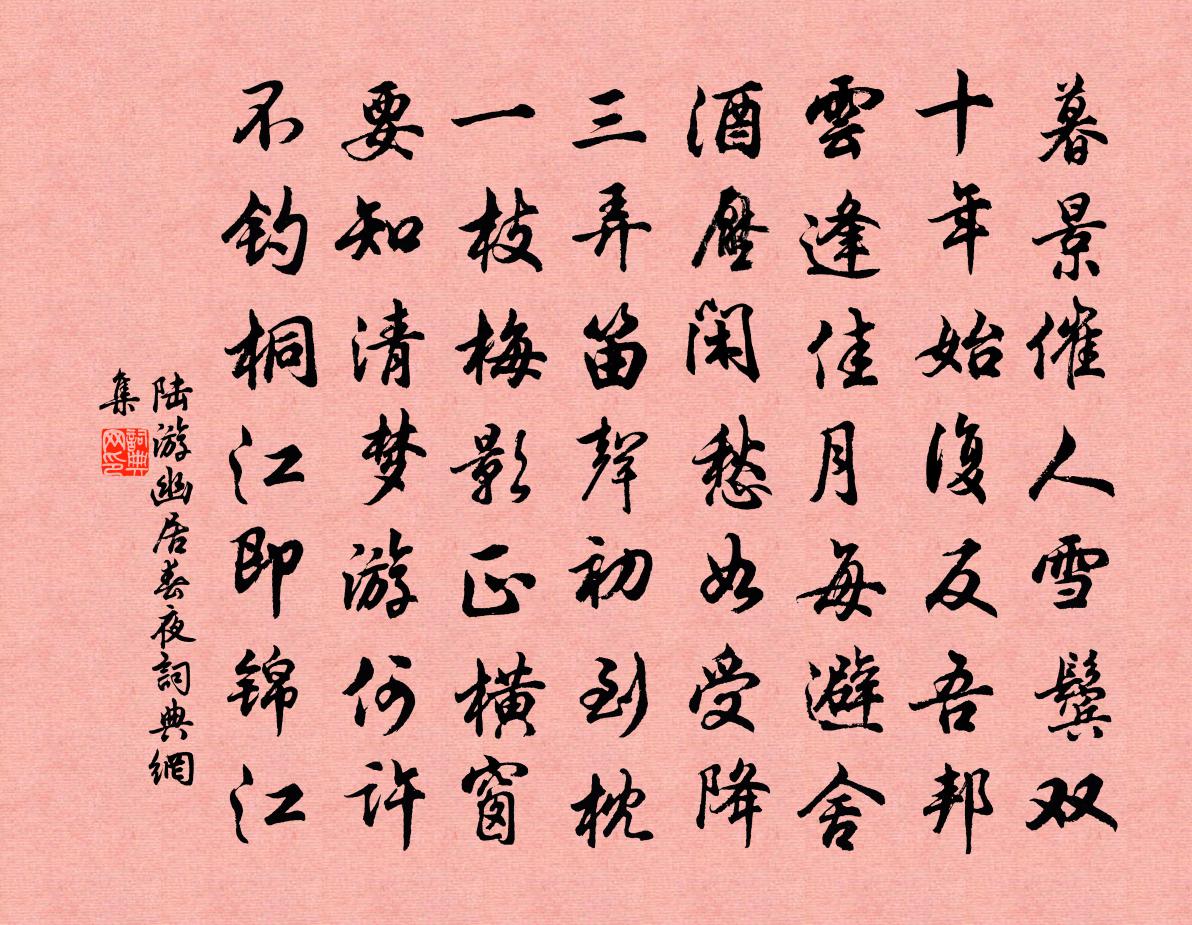 暮景催人雪鬓双
十年始復反吾邦
雲逢佳月每避舍
酒壓闲愁如受降
三弄笛聲初到枕
一枝梅影正橫窗
要知清梦游何许
不釣桐江即錦江
陆游幽居春夜詞典網
集
詞典
网印